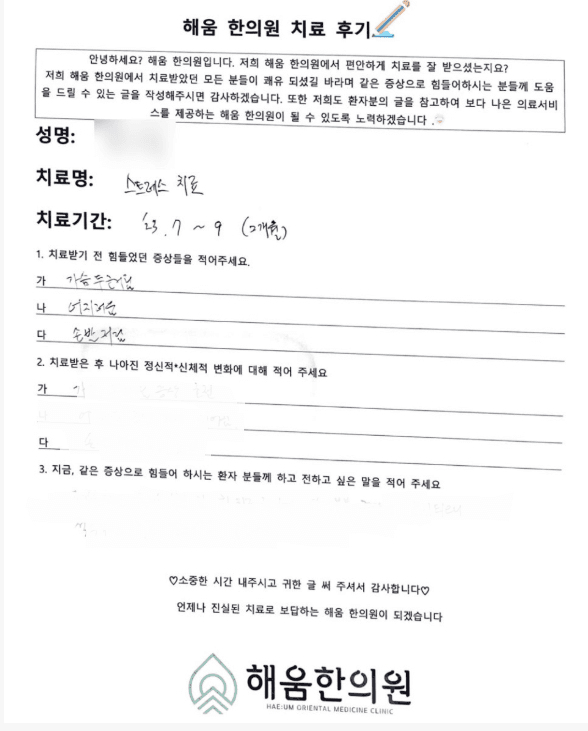 해움 한의원 치료 후기
안녕하세요? 해움 한의원입니다. 저희 해움 한의원에서 편안하게 치료를 잘 받으셨는지요?
저희 해움 한의원에서 치료받았던 모든 분들이 쾌유 되셨길 바라며 같은 증상으로 힘들어하시는 분들께 도움
을 드릴 수 있는 글을 작성해주시면 감사하겠습니다. 또한 저희도 환자분의 글을 참고하여 보다 나은 의료서비
스를 제공하는 해움 한의원이 될 수 있도록 노력하겠습니다 .
성명:
치료명: 스트레스 치료
치료기간: '23. 7 ~ 9 (2개월)
1. 치료받기 전 힘들었던 증상들을 적어주세요.
가 가슴두근거림
나 어지러움
다 손발저림
2. 치료받은 후 나아진 정신적*신체적 변화에 대해 적어 주세요
가
나
다
3. 지금, 같은 증상으로 힘들어 하시는 환자 분들께 하고 전하고 싶은 말을 적어 주세요
♡소중한 시간 내주시고 귀한 글 써 주셔서 감사합니다♡
언제나 진실된 치료로 보답하는 해움 한의원이 되겠습니다
해움한의원
HAE:UM ORIENTAL MEDICINE CLINIC